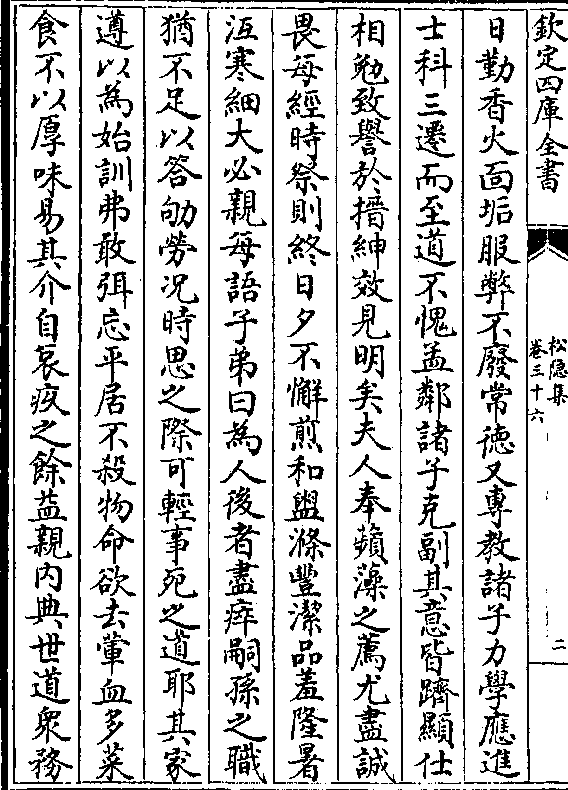 欽定四庫全書
松隠集
卷三十六
二
日勤香火面垢服弊不廢常徳又専教諸子力學應進
士科三遷而至道不愧孟鄰諸子克副其意皆躋顯仕
相勉致譽於搢紳效見明矣夫人奉蘋藻之薦尤盡誠
畏每經時祭則終日夕不懈煎和盥滌豐潔品羞隆暑
沍寒細大必親每語子弟曰為人後者盡瘁嗣孫之職
猶不足以答劬勞况時思之際可輕事死之道耶其家
遵以為始訓弗敢弭忘平居不殺物命欲去葷血多菜
食不以厚味易其介自哀疚之餘益親内典世道衆務